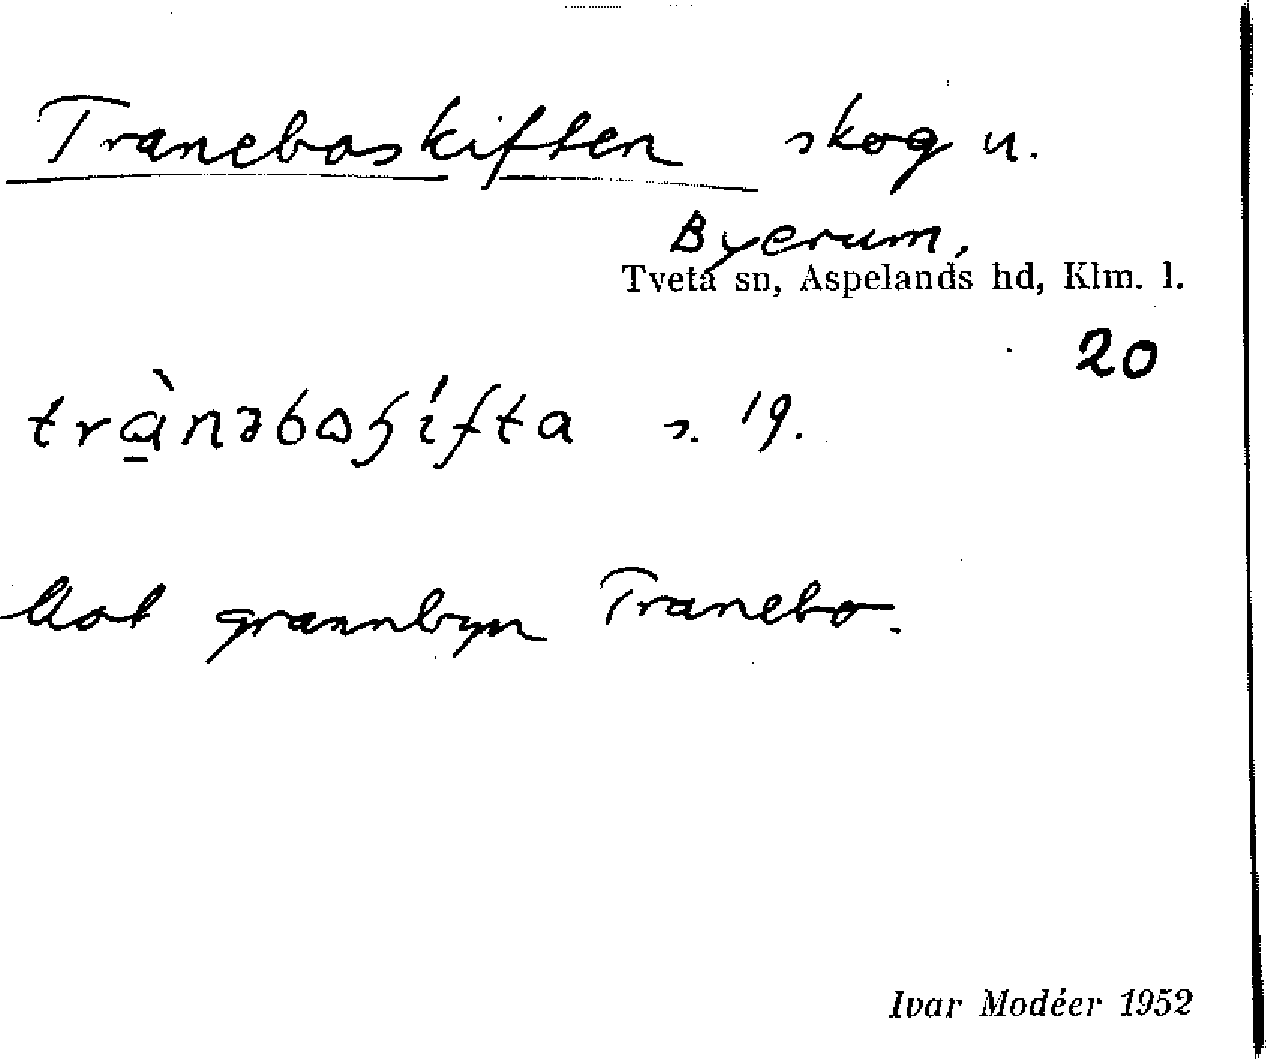 Traneboskiften skog u.
Byerum,
Tveta sn, Aspelands hd, Klm. l.
20
s. 19.
Mot grannbyn Tranebo.
Ivar Modéer 1952